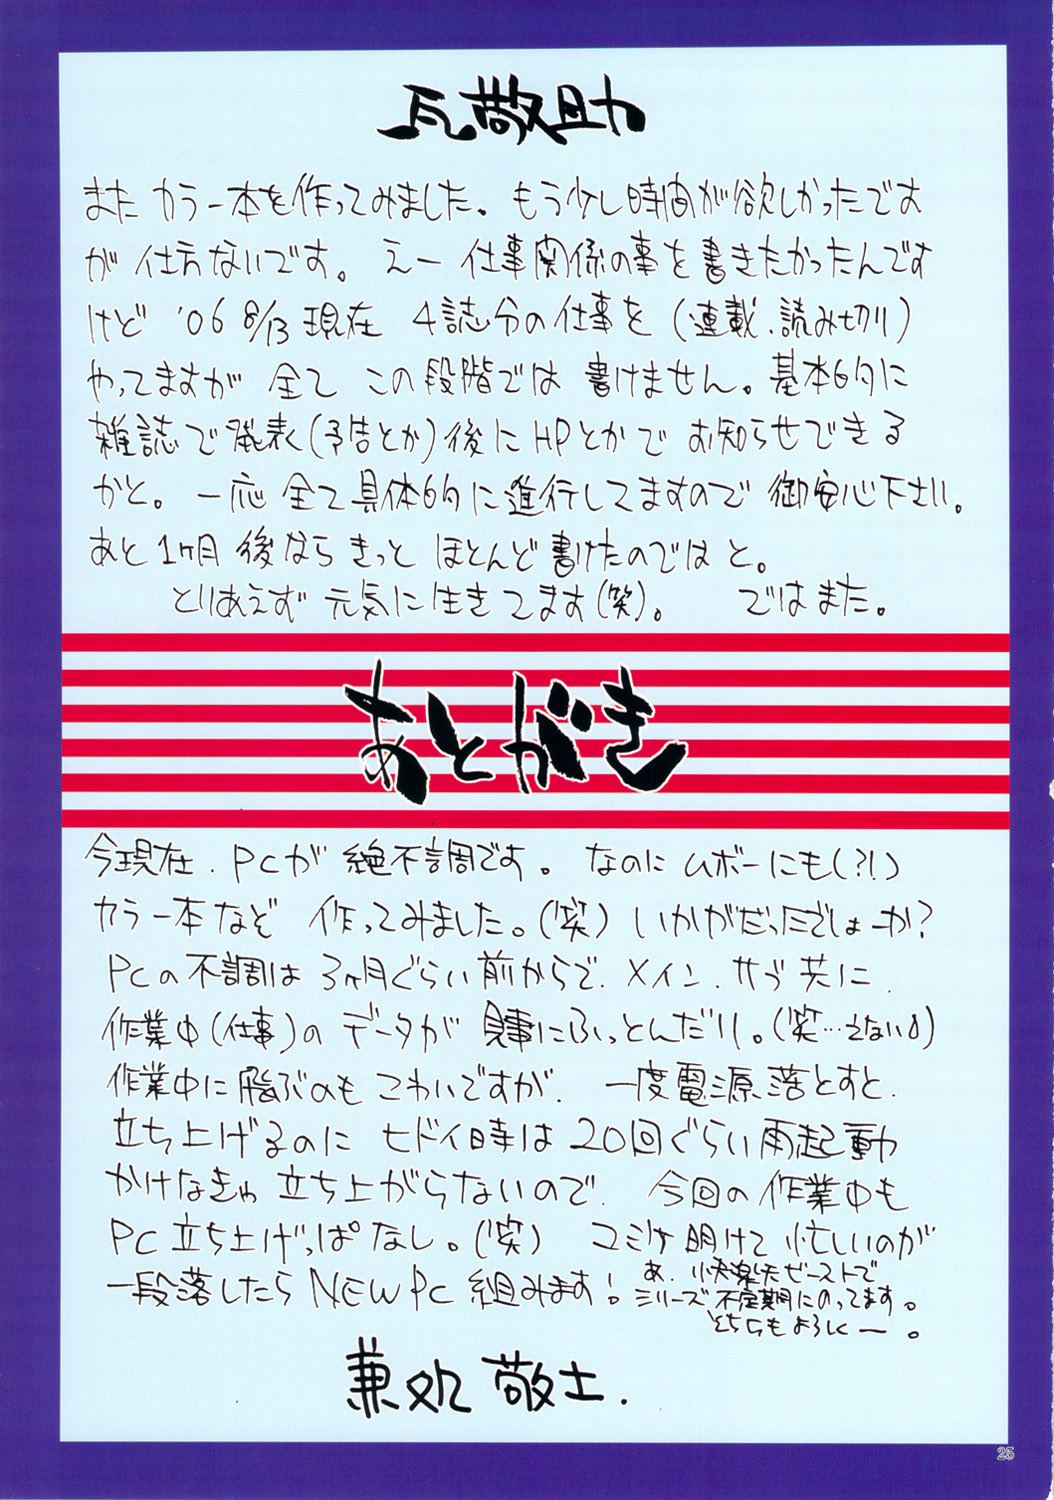 瓦敬助
また カラー本を作ってみました。もう少し時間が欲しかったです
が仕方ないです。 えー 仕事関係の事を書きたかったんです
けど '06 8/13現在 4誌分の仕事を(連載、読み切り)
やってますが 全て この段階では 書けません。基本的に
雑誌で発表(予告とか)後にHPとかで お知らせできる
かと。一応 全て具体的に進行してますので 御安心下さい。
あと1ヶ月後ならきっと ほとんど書けたのではと。
とりあえず 元気に生きてます(笑)。 ではまた。
あとがき
今現在、PCが 絶不調です。なのに ムボーにも(?!)
カラー本など 作ってみました。(笑) いかがだったでしょーか?
PCの不調は3ヶ月ぐらい前からで、メイン、サブ共に、
作業中(仕事)のデータが 見事にふっとんだり。(笑…えない)
作業中に飛ぶのも こわいですが、一度電源落とすと、
立ち上げるのに ヒドイ時は 20回ぐらい再起動
かけなきゃ立ち上がらないので、今回の作業中も
PC立ち上げっぱなし。(笑) コミケ明けて忙しいのが
一段落したらNEW PC組みます!
あ、快楽天ビーストで
シリーズ不定期にのってます。
そちらもよろしくー。
兼処敬士.
25